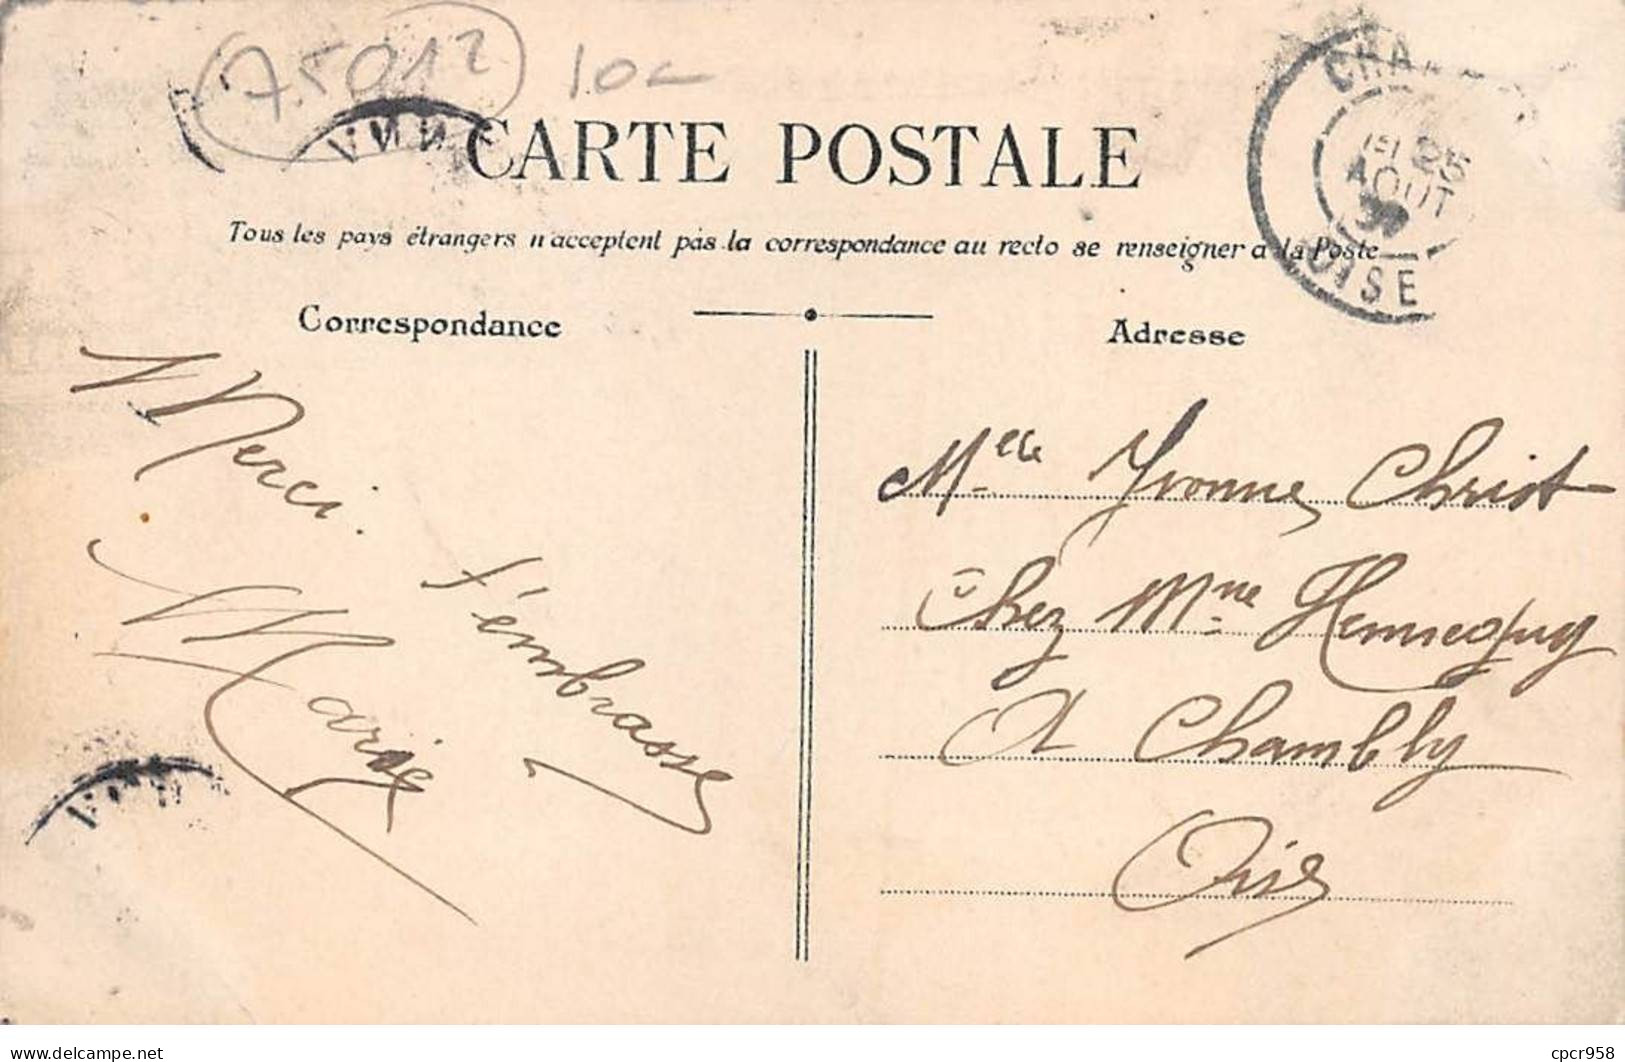 75012 10
CARTE POSTALE
Tous les pays étrangers n'acceptent pas la correspondance au recto se renseigner a la Poste
Correspondance
Merci.
t'embrasse
Marie
Adresse
Melle Yvonne Christ
Chez Mme Hennequy
A Chambly
Oise
25
AOUT
OISE
delcampe.net
cpcr958